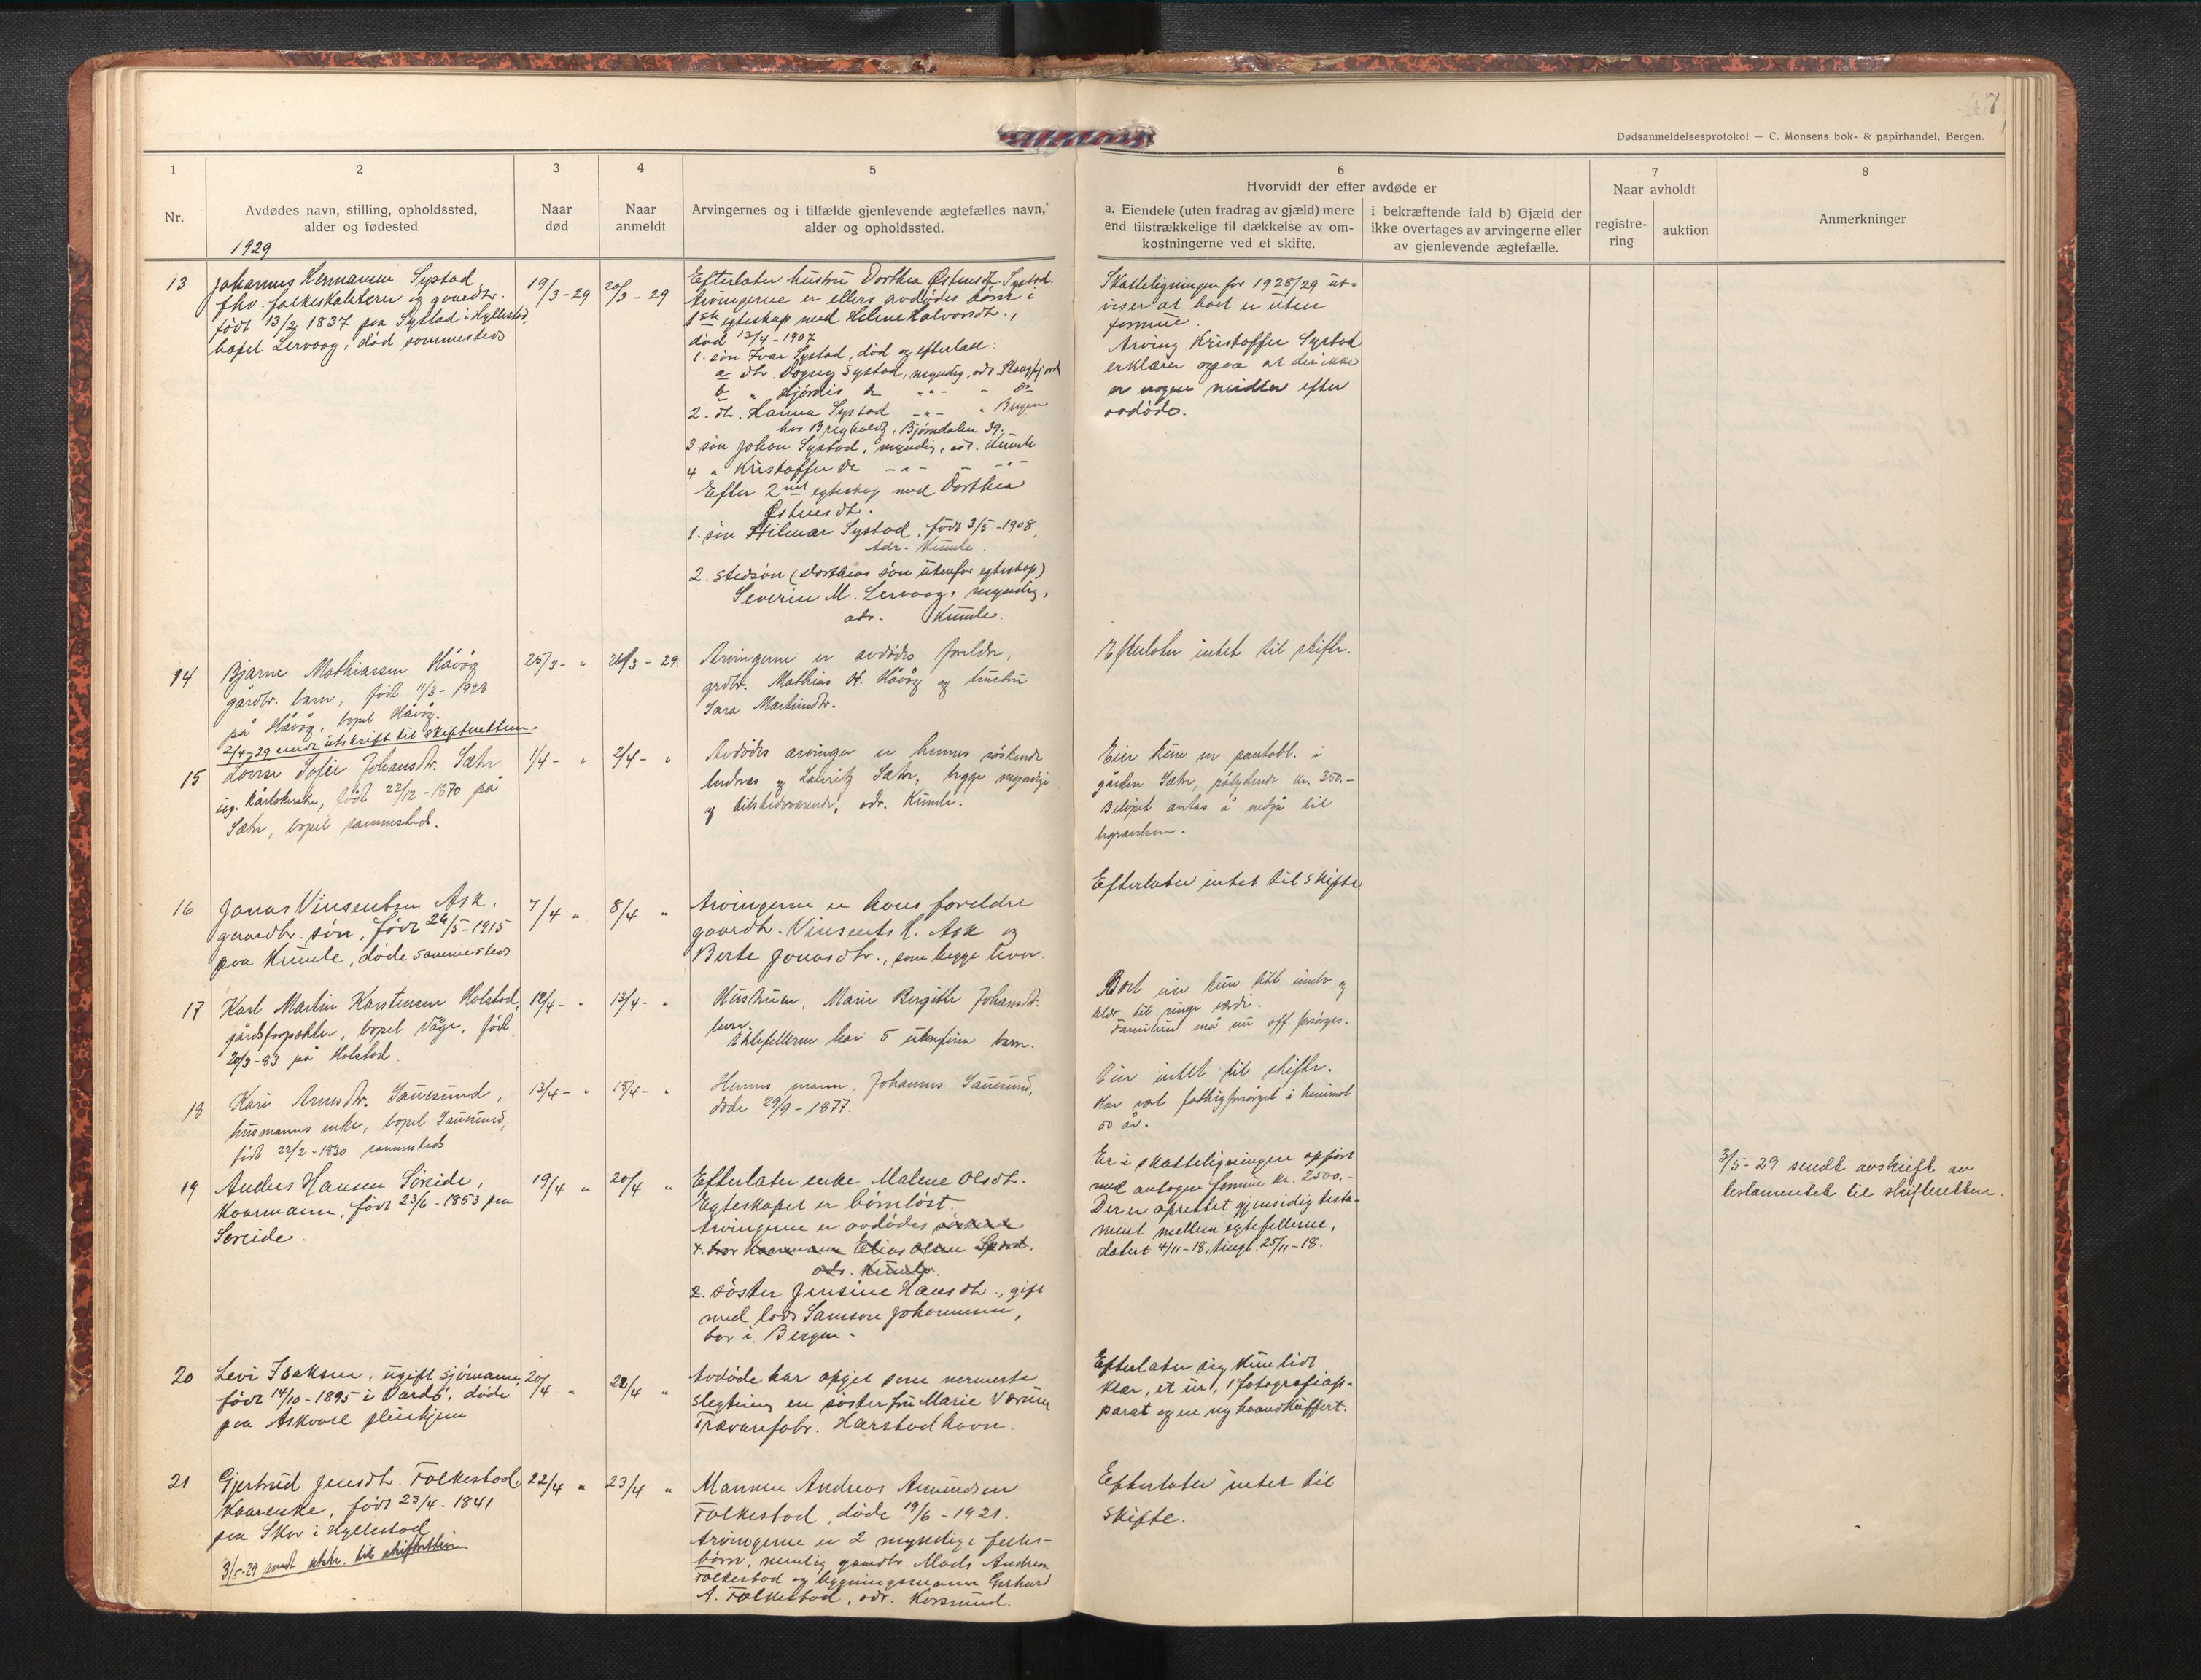 Dødsanmeldelsesprotokol — C. Monsens bok- & papirhandel, Bergen.
1
2
3
4
5
6
7
8
Nr.
Avdødes navn, stilling, opholdssted,
alder og fødested
Naar
død
Naar
anmeldt
Arvingernes og i tilfælde gjenlevende ægtefælles navn,
alder og opholdssted.
Hvorvidt der efter avdøde er
a. Eiendele (uten fradrag av gjæld) mere
end tilstrækkelige til dækkelse av om-
kostningerne ved et skifte.
i bekræftende fald b) Gjæld der
ikke overtages av arvingerne eller
av gjenlevende ægtefælle.
Naar avholdt
registre-
ring
auktion
Anmerkninger
1929
13
Johannes Hermansen Systad
fhv. folkeskolelærer og gaardbr.
født 13/2 1837 paa Systad i Hyllestad,
bopel Lervaag, død sammesteds
19/3-29
20/3-29
Efterlater hustru Dorthea Østensdtr. Systad.
Arvingerne er ellers avdødes børn i
1ste egteskap med Helene Halvorsdtr.,
død 13/4-1907
1. søn Ivar Systad, død og efterlatt:
a dtr. Dagny Systad, myndig, adr.
b " Hjørdis do " " do
2. dtr. Hanna Systad " " Bergen
hos Bjørndalen 39.
3. søn Johan Systad, myndig, adr.
4 " Kristoffer do " "
Efter 2net egteskap med Dorthea
Østensdtr.
1. søn Hilmar Systad, født 3/5-1908,
adr.
2. stedsøn (Dortheas søn utenfor egteskap)
Severin M. Lervaag, myndig,
adr.
Skatteligningen for 1928/29 ut-
viser at boet er uten
formue.
Arving Kristoffer Systad
erklærer ogsaa at der ikke
er nogen midler efter
avdøde.
14
Bjarne Mathiassen Håvåg
gårdbr. barn, født 11/3-1928
på Håvåg, bopel Håvåg.
2/4-29 sendt utskrift til skifteretten.
25/3- "
26/3-29.
Arvingerne er avdødes foreldre,
grdbr. Mathias H. Håvåg og hustru
Sara Martinsdtr.
Efterlater intet til skifte.
15
Lovise Sofie Johansdtr. Sæter
ug. født 22/12-1870 på
Sæter, bopel sammesteds.
1/4- "
2/4- "
Avdødes arvinger er hennes søskende
Andreas og Lauritz Sæter, begge myndige
og tilstedeværende, adr.
Eier kun en pantobl. i
gården Sæter, pålydende kr. 350.-
Beløpet antas å medgå til
begravelsen.
16
Jonas Vinsentsen Ask.
gaardbr. søn, født 26/5-1915
paa døde sammesteds
7/4 "
8/4 "
Arvingerne er hans foreldre
gaardbr. Vinsents H. Ask og
Berte Jonasdtr., som begge lever.
Efterlater intet til skifte
17
Karl Martin Karstensen Holstad,
gårdsforpakter, bopel Våge, født
20/3-83 på Holstad.
12/4- "
13/4- "
Hustruen, Marie Bergithe Johansdtr.
lever.
Ektefellerne har 5 barn.
Boet eier kun litt innbo og
klær til ringe verdi.
Familien må nu off. forsørges.
18
Kari Arnesdtr. Sauesund,
husmanns enke, bopel Sauesund,
født 22/2-1830 sammesteds
13/4- "
15/4- "
Hennes mann, Johannes Sauesund,
døde 29/9-1877.
Eier intet til skifte.
Har vært fattigforsørget i henimot
50 år.
19
Anders Hansen Søreide,
Kaarmann, født 23/6-1853 paa
Søreide.
19/4 "
20/4 "
Efterlater enke Malene Olsdtr.
Egteskapet er børnløst.
Arvingerne er avdødes søskende
1. bror Kaarmann Elias Olsen
adr.
2. søster Jensine Hansdtr., gift
med lods Samson Johannesen,
bor i Bergen.
Er i skatteligningen opført
med antagen formue kr. 2500.-
Der er oprettet gjensidig testa-
ment mellem egtefellerne,
datert 4/11-18, tingl. 25/11-18.
3/5-29 sendt avskrift av
testamentet til skifteretten.
20
Levi Isaksen, ugift sjømann,
født 14/10-1895 i Vardø, døde
paa Askvoll pleiehjem
20/4 "
22/4 "
Avdøde har opgit som nermeste
slegtning en søster fru Marie
Trævarefabr. Harstadhavn.
Efterlater sig kun lidt
klær, et ur, 1 fotografiap-
parat og en ny haandkuffert.
21
Gjertrud Jensdtr. Folkestad,
Kaarenke, født 23/4-1841
paa Skor i Hyllestad
3/5-29 sendt utskr. til skifteretten
22/4 "
23/4 "
Mannen Andreas Amundsen
Folkestad, døde 19/6-1921.
Arvingerne er 2 myndige felles-
børn, nemlig gaardbr. Mads Andreas
Folkestad og bygningsmann Gerhard
A. Folkestad, adr. Korssund.
Efterlater intet til
skifte.